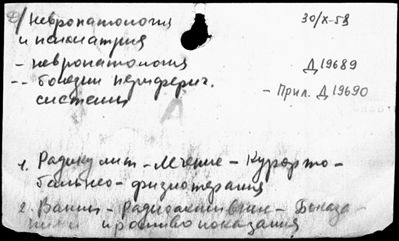 д/ Невропатология 30/X-58
и психиатрия
- невропатология Д19689
-- болезни периферич. - Прил. Д19690
системы
1. Радикулит - лечение - Курорто-
бальнео - физиотерапия
2. Ванны - радиоактивные - Показа-
ния и противопоказания